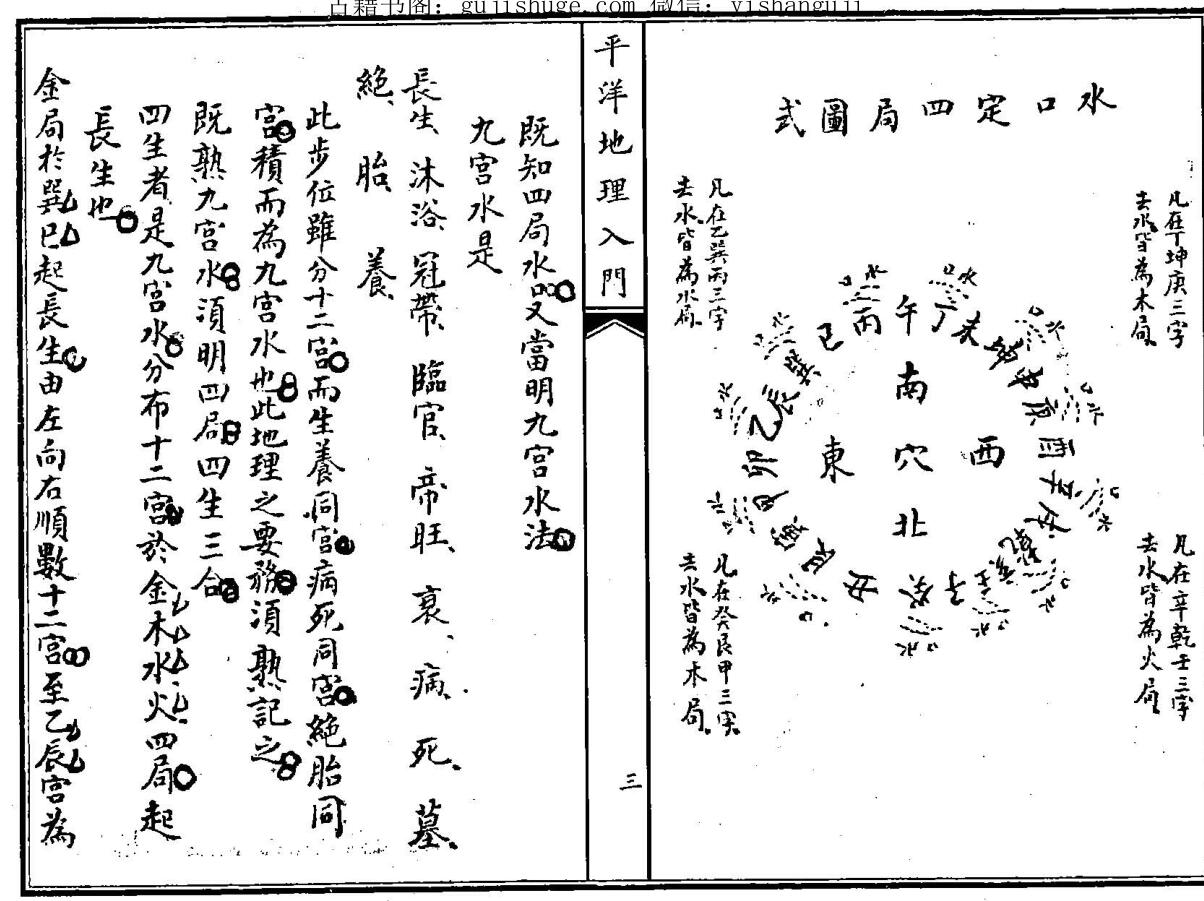 古籍书阁：gujishuge.com 微信：yishanguji
水口定四局圖式
凡在丁坤庚三字
去水皆為木局
凡在乙巽丙三字
去水皆為水局
凡在辛乾壬三字
去水皆為火局
凡在癸艮甲三字
去水皆為木局
午丁未坤申庚酉辛戌乾亥壬子癸丑艮寅甲卯乙辰巽巳丙
南
東 穴 西
北
平洋地理入門
三
既知四局水口又當明九宮水法
九宮水是
長生、沐浴、冠帶、臨官、帝旺、衰、病、死、墓、
絕、胎、養、
此步位雖分十二宮而生養同宮病死同宮絕胎同
宮積而為九宮水也此地理之要務須熟記之
既熟九宮水須明四局四生三合
四生者是九宮水分布十二宮於金木水火四局起
長生也
金局於巽巳起長生由左向右順數十二宮至乙辰宮為